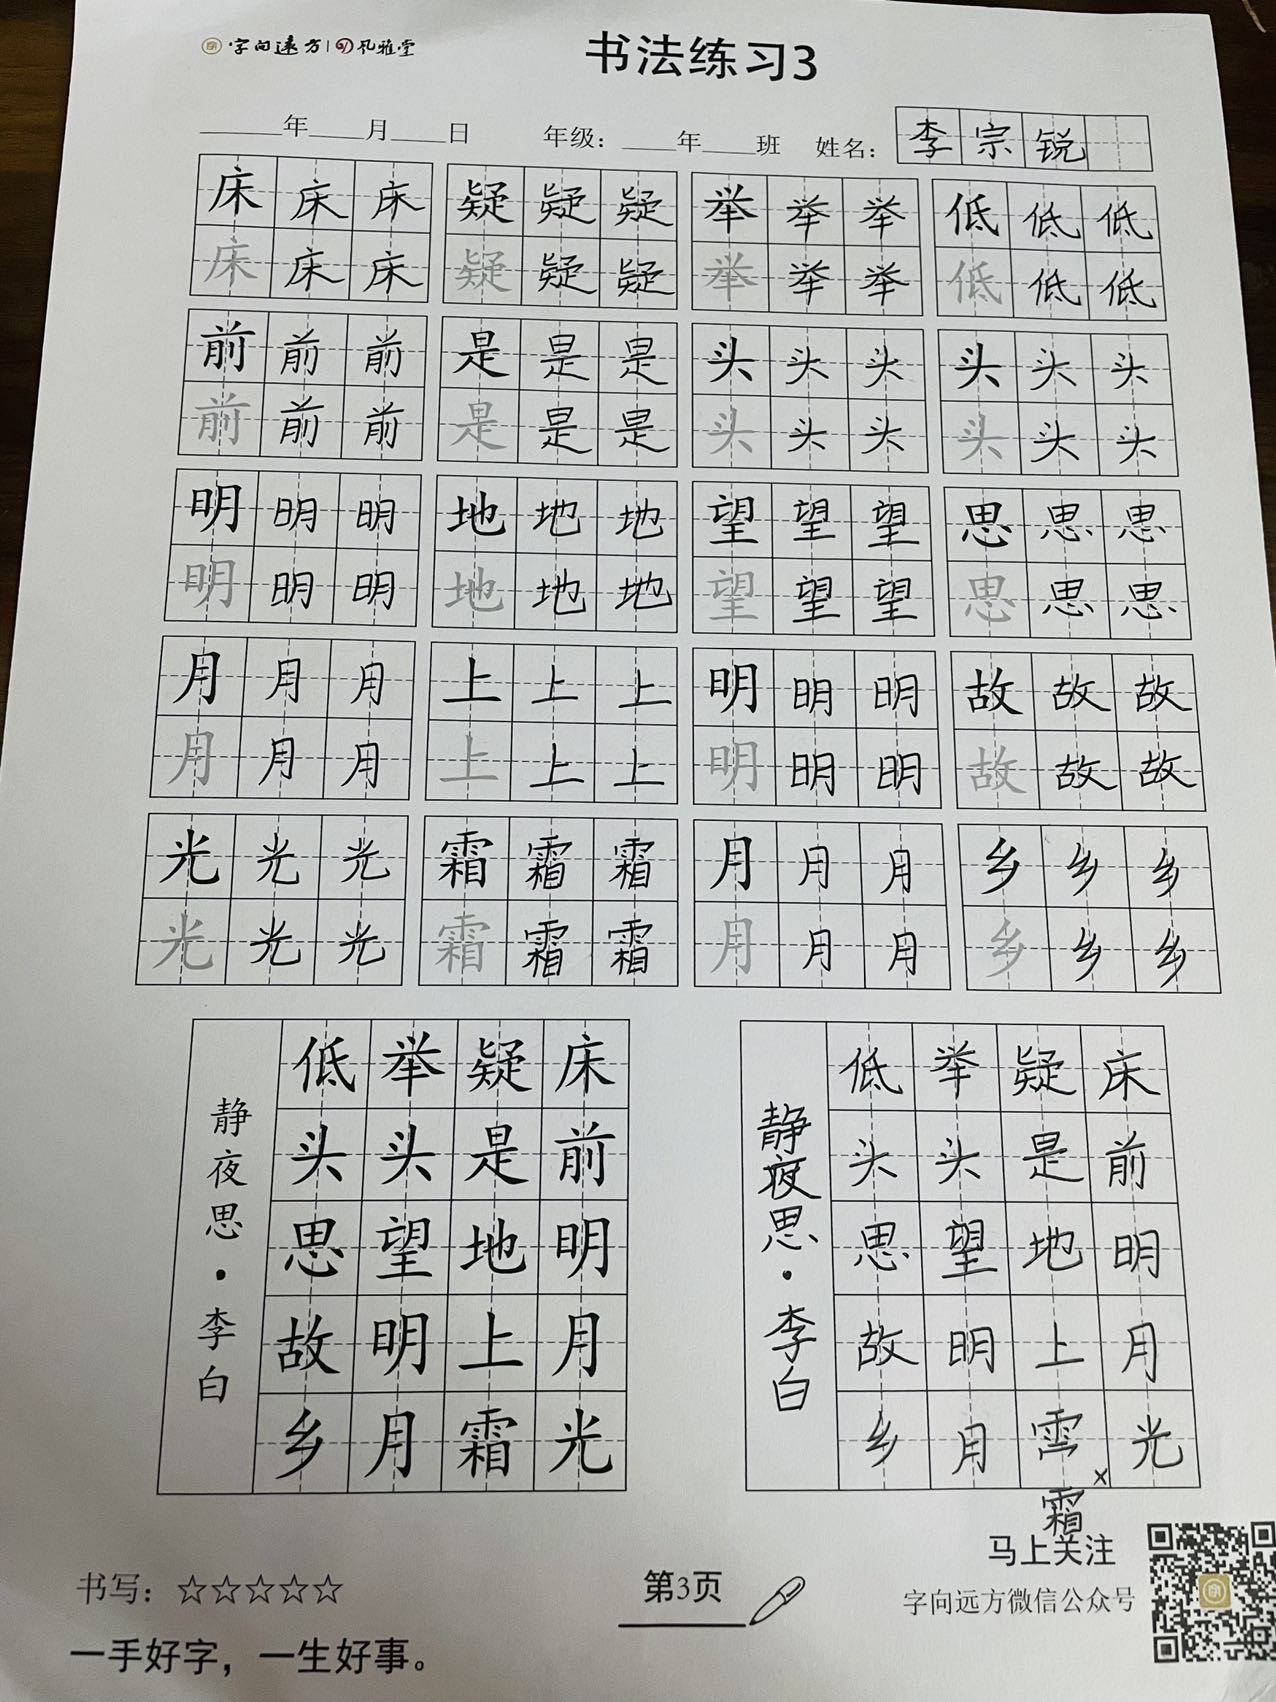 字向远方 | 风雅堂
书法练习3
____年____月____日 年级：____年____班 姓名：李宗锐
床床床 疑疑疑 举举举 低低低
床床床 疑疑疑 举举举 低低低
前前前 是是是 头头头 头头头
前前前 是是是 头头头 头头头
明明明 地地地 望望望 思思思
明明明 地地地 望望望 思思思
月月月 上上上 明明明 故故故
月月月 上上上 明明明 故故故
光光光 霜霜霜 月月月 乡乡乡
光光光 霜霜霜 月月月 乡乡乡
床前明月光
疑是地上霜
举头望明月
低头思故乡
静夜思·李白
床前明月光
疑是地上 × 霜
举头望明月
低头思故乡
静夜思·李白
书写：☆☆☆☆☆
一手好字，一生好事。
第3页
马上关注
字向远方微信公众号